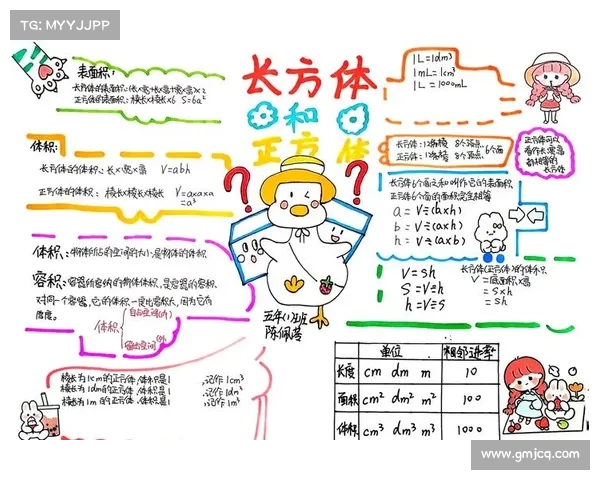 TG: MYYJJPP
长方体
和
正方体
表面积:
长方体的表面积:(长×宽+长×高+宽×高)×2
正方体的表面积:棱长×棱长×6 S=6a²
体积:
长方体的体积:长×宽×高 V=abh
正方体的体积: 棱长×棱长×棱长 V=a×a×a
=a³
体积:物体所占的空间的大小,是物体的体积.
容积:容器所容纳的物体体积,是容器的容积.
对同一个容器,它的体积一定比容积大,因为它有
厚度。
体积
五年(1)班
棱长为1cm的正方体,体积是1 ,记作1cm³
棱长为1dm的正方体,体积是1 ,记作1dm³
棱长为1m的正方体,体积是1 ,记作1m³
1L=1dm³
1mL=1cm³
1L=1000mL
长方体:12条棱 8个顶点
正方体:12条棱 8个顶点
6个面
正方体可以
看作长、宽、高
都相等的
长方体
长方体6个面之和叫作它的表面积.
正方体6个面的面积完全相等
a=V÷(b×h)
b=V÷(a×h)
h=V÷(a×b)
V=sh
S=V÷h
h=V÷S
长方体(正方体)的体积
V=底面积×高
=S×h
=sh
单位 相邻进率
长度 cm dm m 10
面积 cm² dm² m² 100
体积 cm³ dm³ m³ 1000
www.gmjcq.com